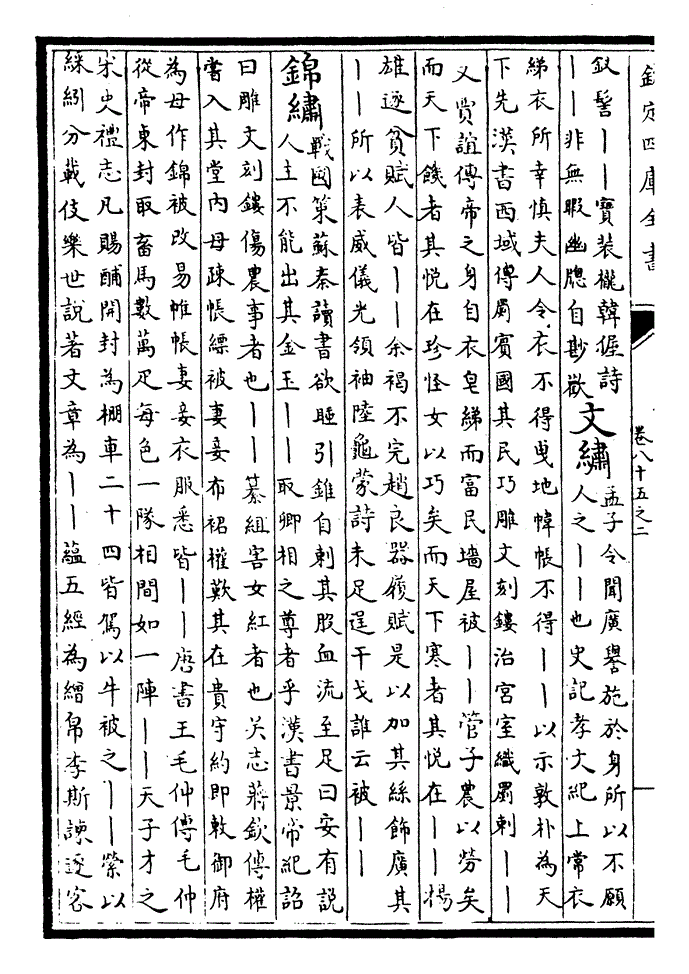 欽定四庫全書
卷八十五之二
釵髻丨丨寶裝櫳韓偓詩
丨丨非無暇幽牕自尠歡
文繡
孟子令聞廣譽施於身所以不願
人之丨丨也史記孝文紀上常衣
綈衣所幸慎夫人令衣不得曳地幃帳不得丨丨以示敦朴為天
下先漢書西域傳罽賓國其民巧雕文刻鏤治宮室織罽刺丨丨
又賈誼傳帝之身自衣皂綈而富民墻屋被丨丨管子農以勞矣
而天下饑者其悦在珍怪女以巧矣而天下寒者其悦在丨丨揚
雄逐貧賦人皆丨丨余褐不完趙良器履賦是以加其絲飾廣其
丨丨所以表威儀光領袖陸龜蒙詩未足逞干戈誰云被丨丨
錦繡
戰國策蘇秦讀書欲睡引錐自刺其股血流至足曰安有説
人主不能出其金玉丨丨取卿相之尊者乎漢書景帝紀詔
曰雕文刻鏤傷農事者也丨丨纂組害女紅者也吳志蔣欽傳權
嘗入其堂內母疎帳縹被妻妾布裙權歎其在貴守約即敕御府
為母作錦被改易帷帳妻妾衣服悉皆丨丨唐書王毛仲傳毛仲
從帝東封取畜馬數萬疋每色一隊相間如一陣丨丨天子才之
宋史禮志凡賜酺開封為棚車二十四皆駕以牛被之丨丨縈以
綵紖分載伎樂世說著文章為丨丨蘊五經為繒帛李斯諫逐客